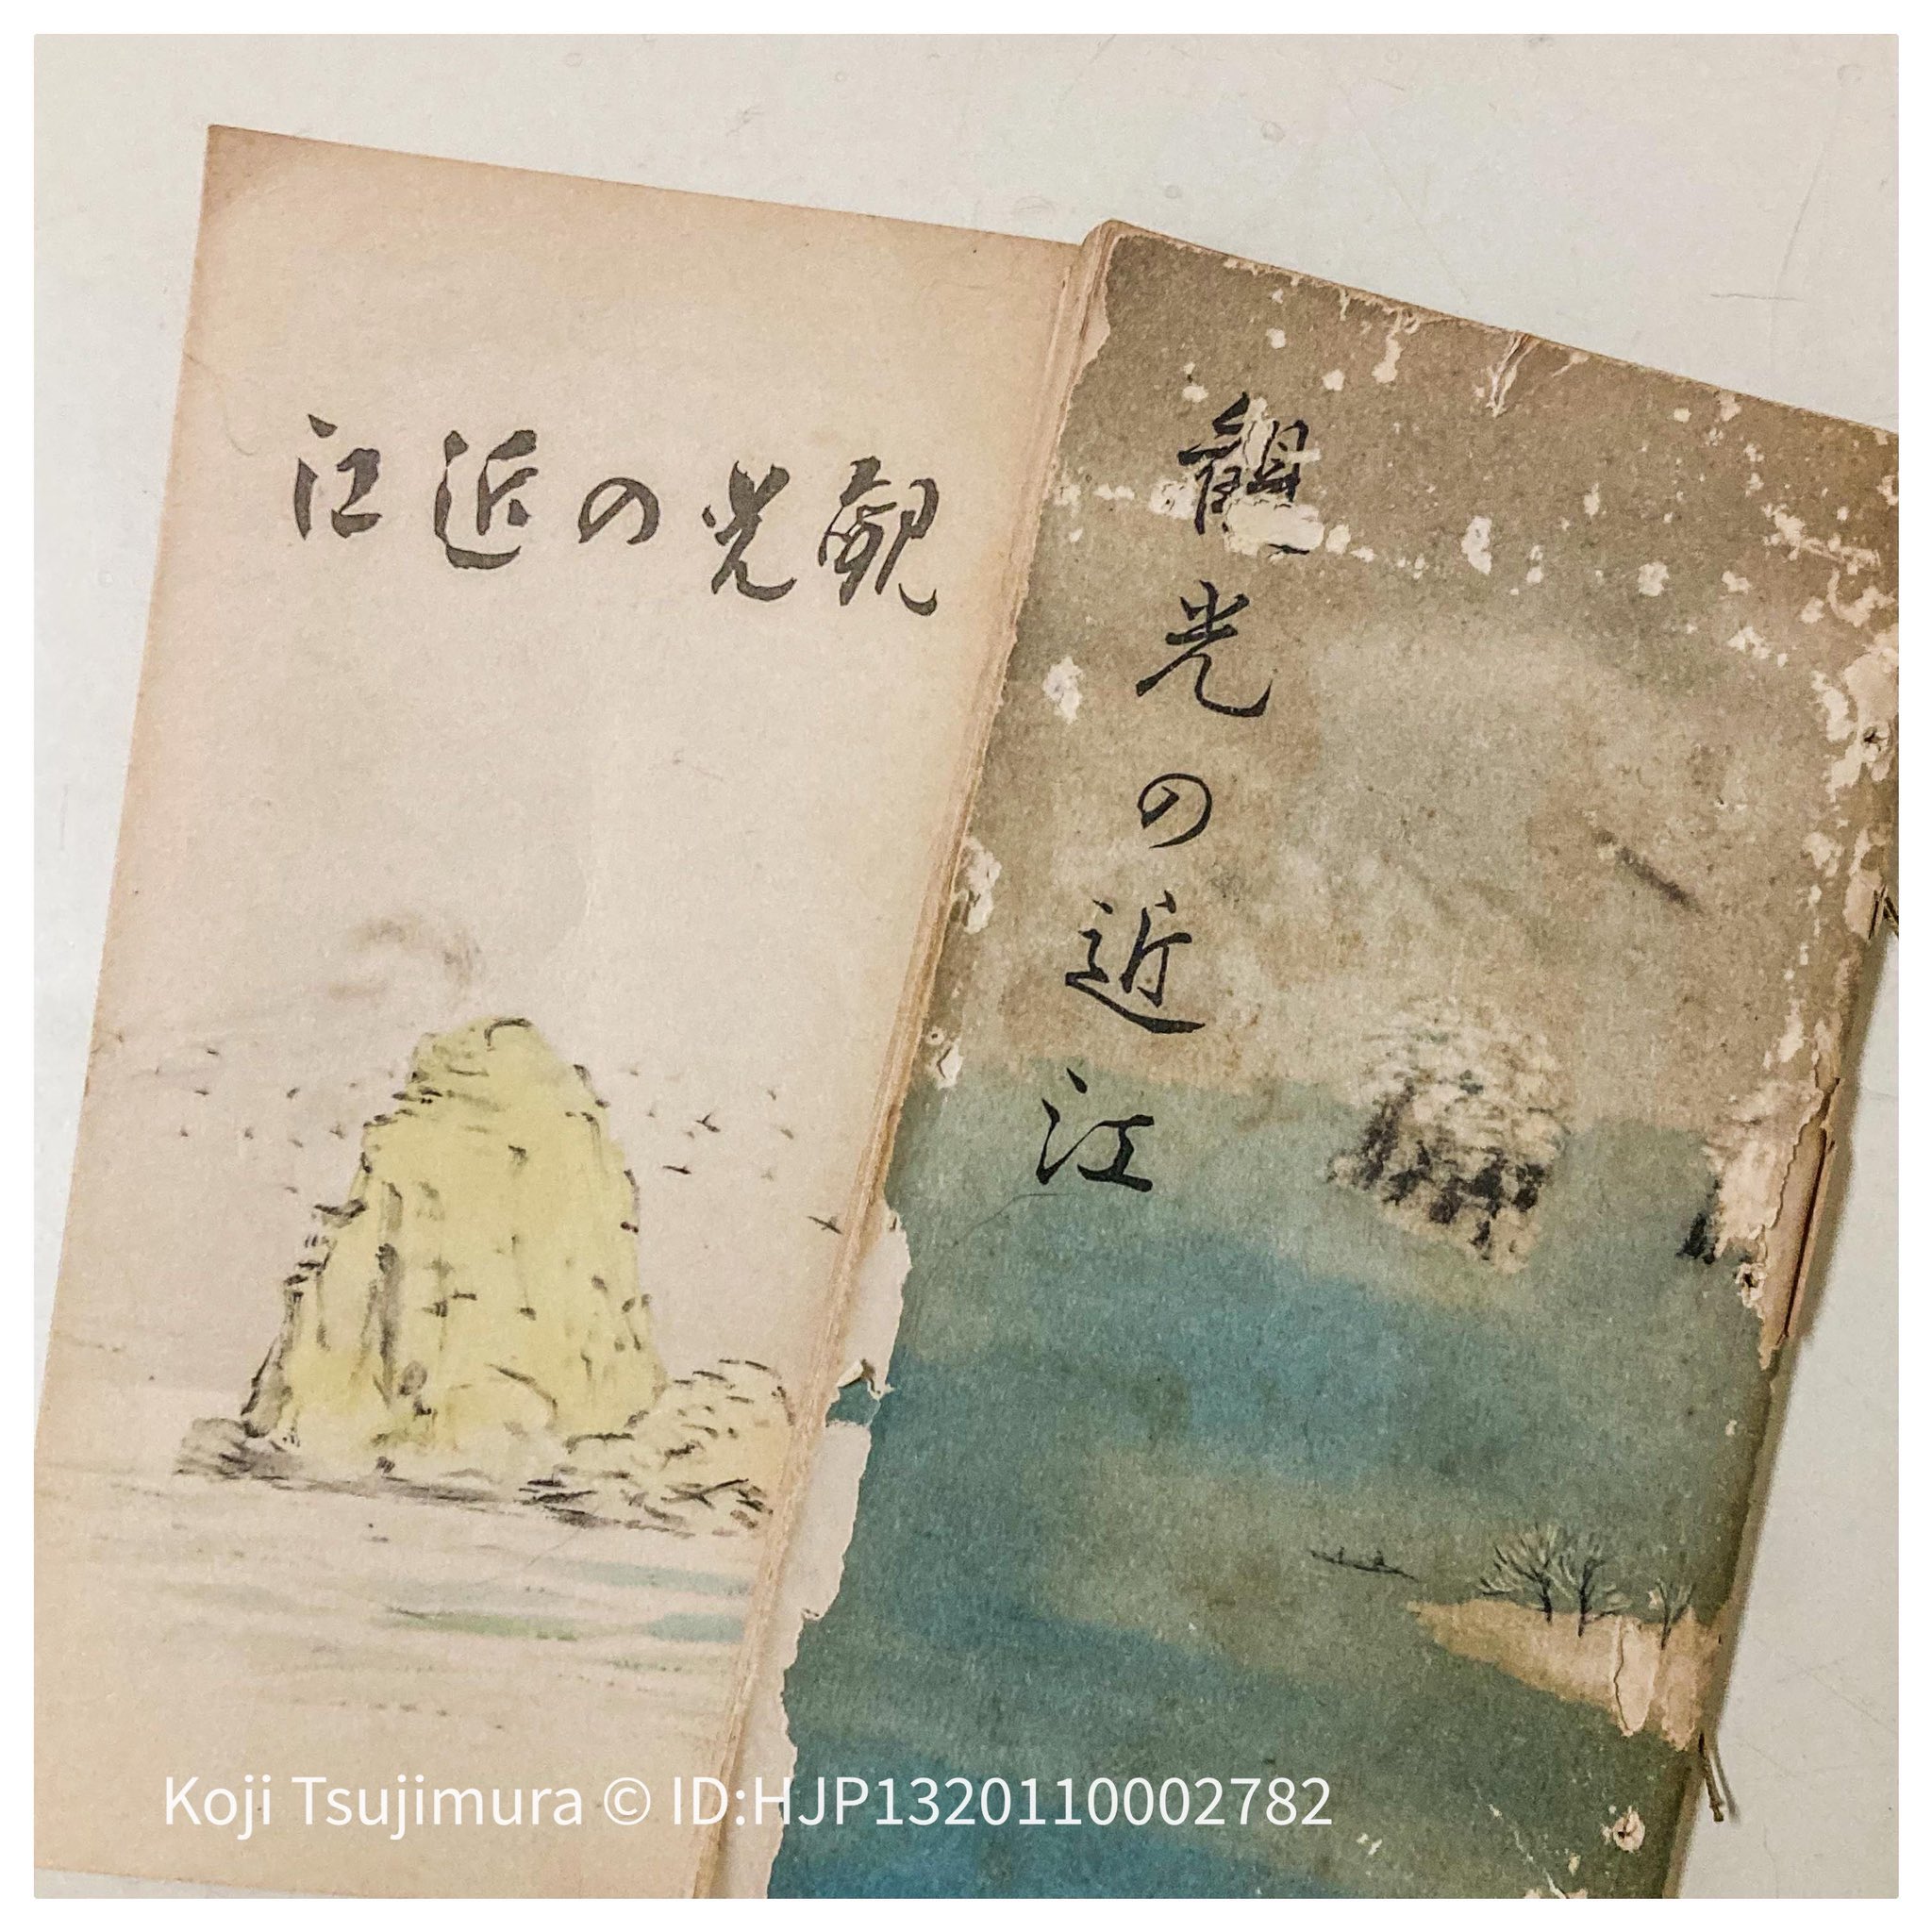 觀光の近江
觀光の近江
Koji Tsujimura © ID:HJP1320110002782